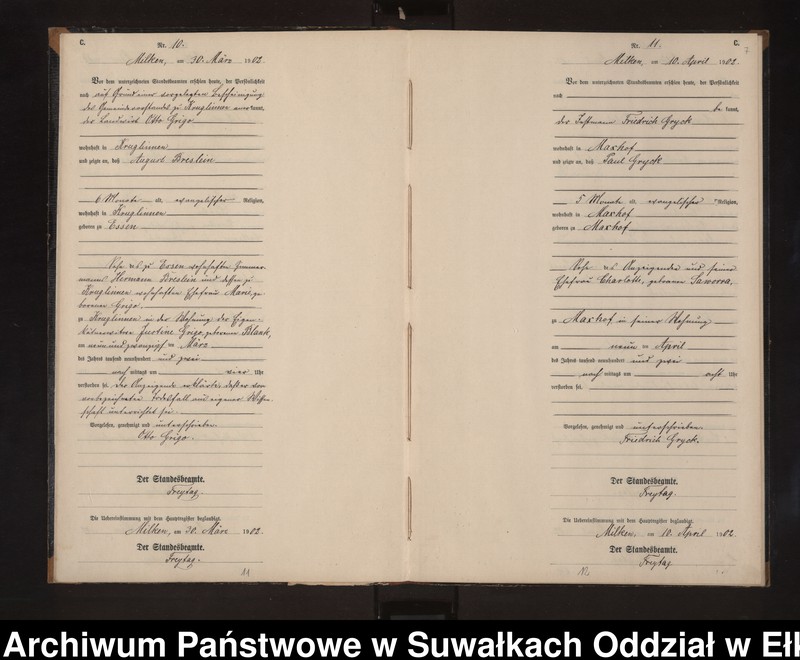 C.
Nr. 10.
Milken, am 30. März 1902.
Vor dem unterzeichneten Standesbeamten erschien heute, der Persönlichkeit
nach auf Grund einer vorgelegten Bescheinigung
des Gemeindevorstandes zu Kruglinnen anerkannt,
der Landwirt Otto Grigo
wohnhaft in Kruglinnen
und zeigte an, daß August Breslein
6 Monate alt, evangelischer Religion,
wohnhaft in Kruglinnen
geboren zu Essen
Sohn des zu Essen wohnhaften Zimmer-
manns Hermann Breslein und dessen zu
Kruglinnen wohnhaften Ehefrau Marie, ge-
borenen Grigo,
zu Kruglinnen in der Wohnung der Eigen-
kätnerwitwe Justine Grigo, geborenen Blank,
am neunundzwanzigsten März
des Jahres tausend neunhundert und zwei
nachmittags um vier Uhr
verstorben sei. Der Anzeigende erklärte, daß er von
vorbezeichneten Todesfall aus eigener Wissen-
schaft unterrichtet sei.
Vorgelesen, genehmigt und unterschrieben.
Otto Grigo.
Der Standesbeamte.
Freytag.
Die Uebereinstimmung mit dem Hauptregister beglaubigt.
Milken, am 30. März 1902.
Der Standesbeamte.
Freytag.
11
Nr. 11.
C.
7
Milken, am 10. April 1902.
Vor dem unterzeichneten Standesbeamten erschien heute, der Persönlichkeit
nach
bekannt,
der Instmann Friedrich Gryck
wohnhaft in Maxhof
und zeigte an, daß Paul Gryck
5 Monate alt, evangelischer Religion,
wohnhaft in Maxhof
geboren zu Maxhof
Sohn des Anzeigenden und seiner
Ehefrau Charlotte, geborenen Saworra,
zu Maxhof in seiner Wohnung
am neunten April
des Jahres tausend neunhundert und zwei
nachmittags um acht Uhr
verstorben sei.
Vorgelesen, genehmigt und unterschrieben.
Friedrich Gryck.
Der Standesbeamte.
Freytag.
Die Uebereinstimmung mit dem Hauptregister beglaubigt.
Milken, am 10. April 1902.
Der Standesbeamte.
Freytag
12
Archiwum Państwowe w Suwałkach Oddział w Ełk